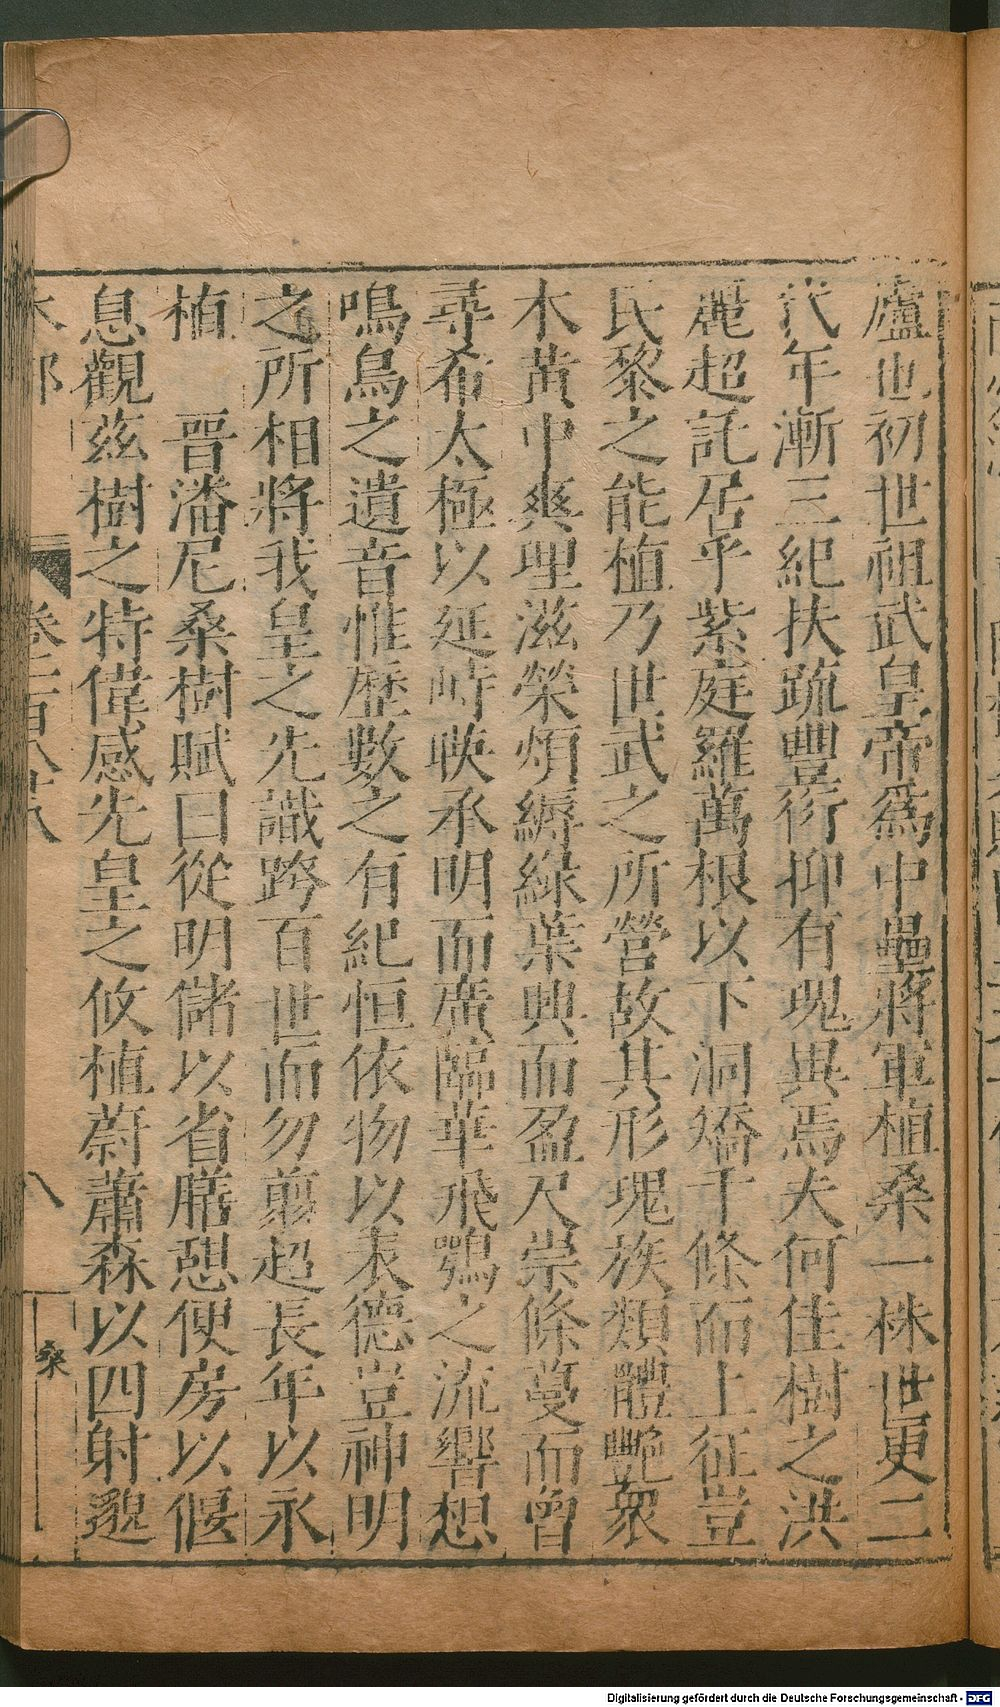 廬也初世祖武皇帝爲中壘將軍植桑一株世更二
代年漸三紀扶疏豐衍抑有瑰異焉夫何佳樹之洪
麗超託居乎紫庭羅萬根以下洞矯千條而上征豈
民黎之能植乃世武之所營故其形瑰族類體艷衆
木黃中爽理滋榮煩縟綠葉興而盈尺崇條蔓而曾
尋希太極以延峙映承明而廣臨華飛鶚之流響想
鳴鳥之遺音惟歷數之有紀恒依物以表德豈神明
之所相將我皇之先識跨百世而勿翦超長年以永
植　晉潘尼桑樹賦曰從明儲以省膳憩便房以偃
息觀茲樹之特偉感先皇之攸植蔚蕭森以四射邈
木部
卷三百八十八
八
桑
Digitalisierung gefördert durch die Deutsche Forschungsgemeinschaft - DFG